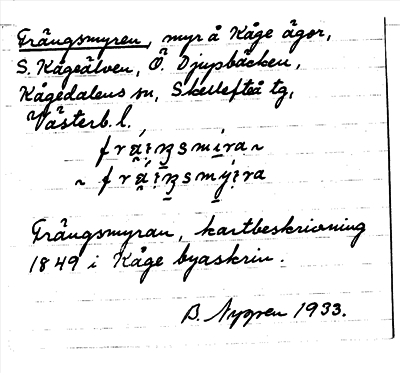 Frångsmyren, myr å Kåge ägor,
S. Kågeälven, Ö. Djupbäcken,
Kågedalens sn, Skellefteå tg,
Västerb. l.
Frångsmyran, kartbeskrivning
1849 i Kåge byaskrin.
B. Nygren 1933.